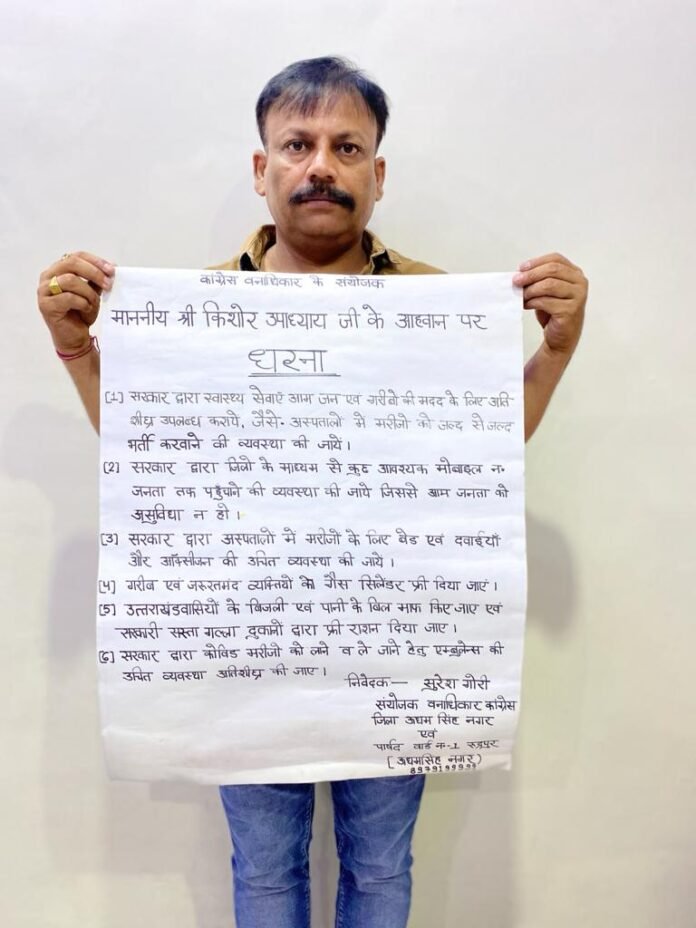 कांग्रेस वनाधिकार के संयोजक
माननीय श्री किशोर उपाध्याय जी के आह्वान पर
धरना
[1] सरकार द्वारा स्वास्थ्य सेवाएँ आम जन एवं गरीबो की मदद के लिए अति
शीघ्र उपलब्ध कराये, जैसे- अस्पतालो में मरीजो को जल्द से जल्द
भर्ती करवाने की व्यवस्था की जायें।
[2] सरकार द्वारा जिलो के माध्यम से कुछ आवश्यक मोबाइल न०
जनता तक पहुँचाने की व्यवस्था की जाये जिससे आम जनता को
असुविधा न हो।
[3] सरकार द्वारा अस्पतालो में मरीजों के लिए बेड एवं दवाईयाँ
और ऑक्सीजन की उचित व्यवस्था की जाये।
[4] गरीब एवं जरूरतमंद व्यक्तियो के गैस सिलेंडर फ्री दिया जाएं।
[5] उत्तराखंडवासियों के बिजली एवं पानी के बिल माफ किए जाए एवं
सरकारी सस्ता गल्ला दुकानों द्वारा फ्री राशन दिया जाए।
[6] सरकार द्वारा कोविड मरीजो को लाने व ले जाने हेतु एम्बुलेन्स की
उचित व्यवस्था अतिशीघ्र की जाए।
निवेदक— सुरेश गौरी
संयोजक वनाधिकार कांग्रेस
जिला उधम सिंह नगर
एवं
पार्षद वार्ड न०-1 रूद्रपुर
[उधमसिंह नगर)
8979199999